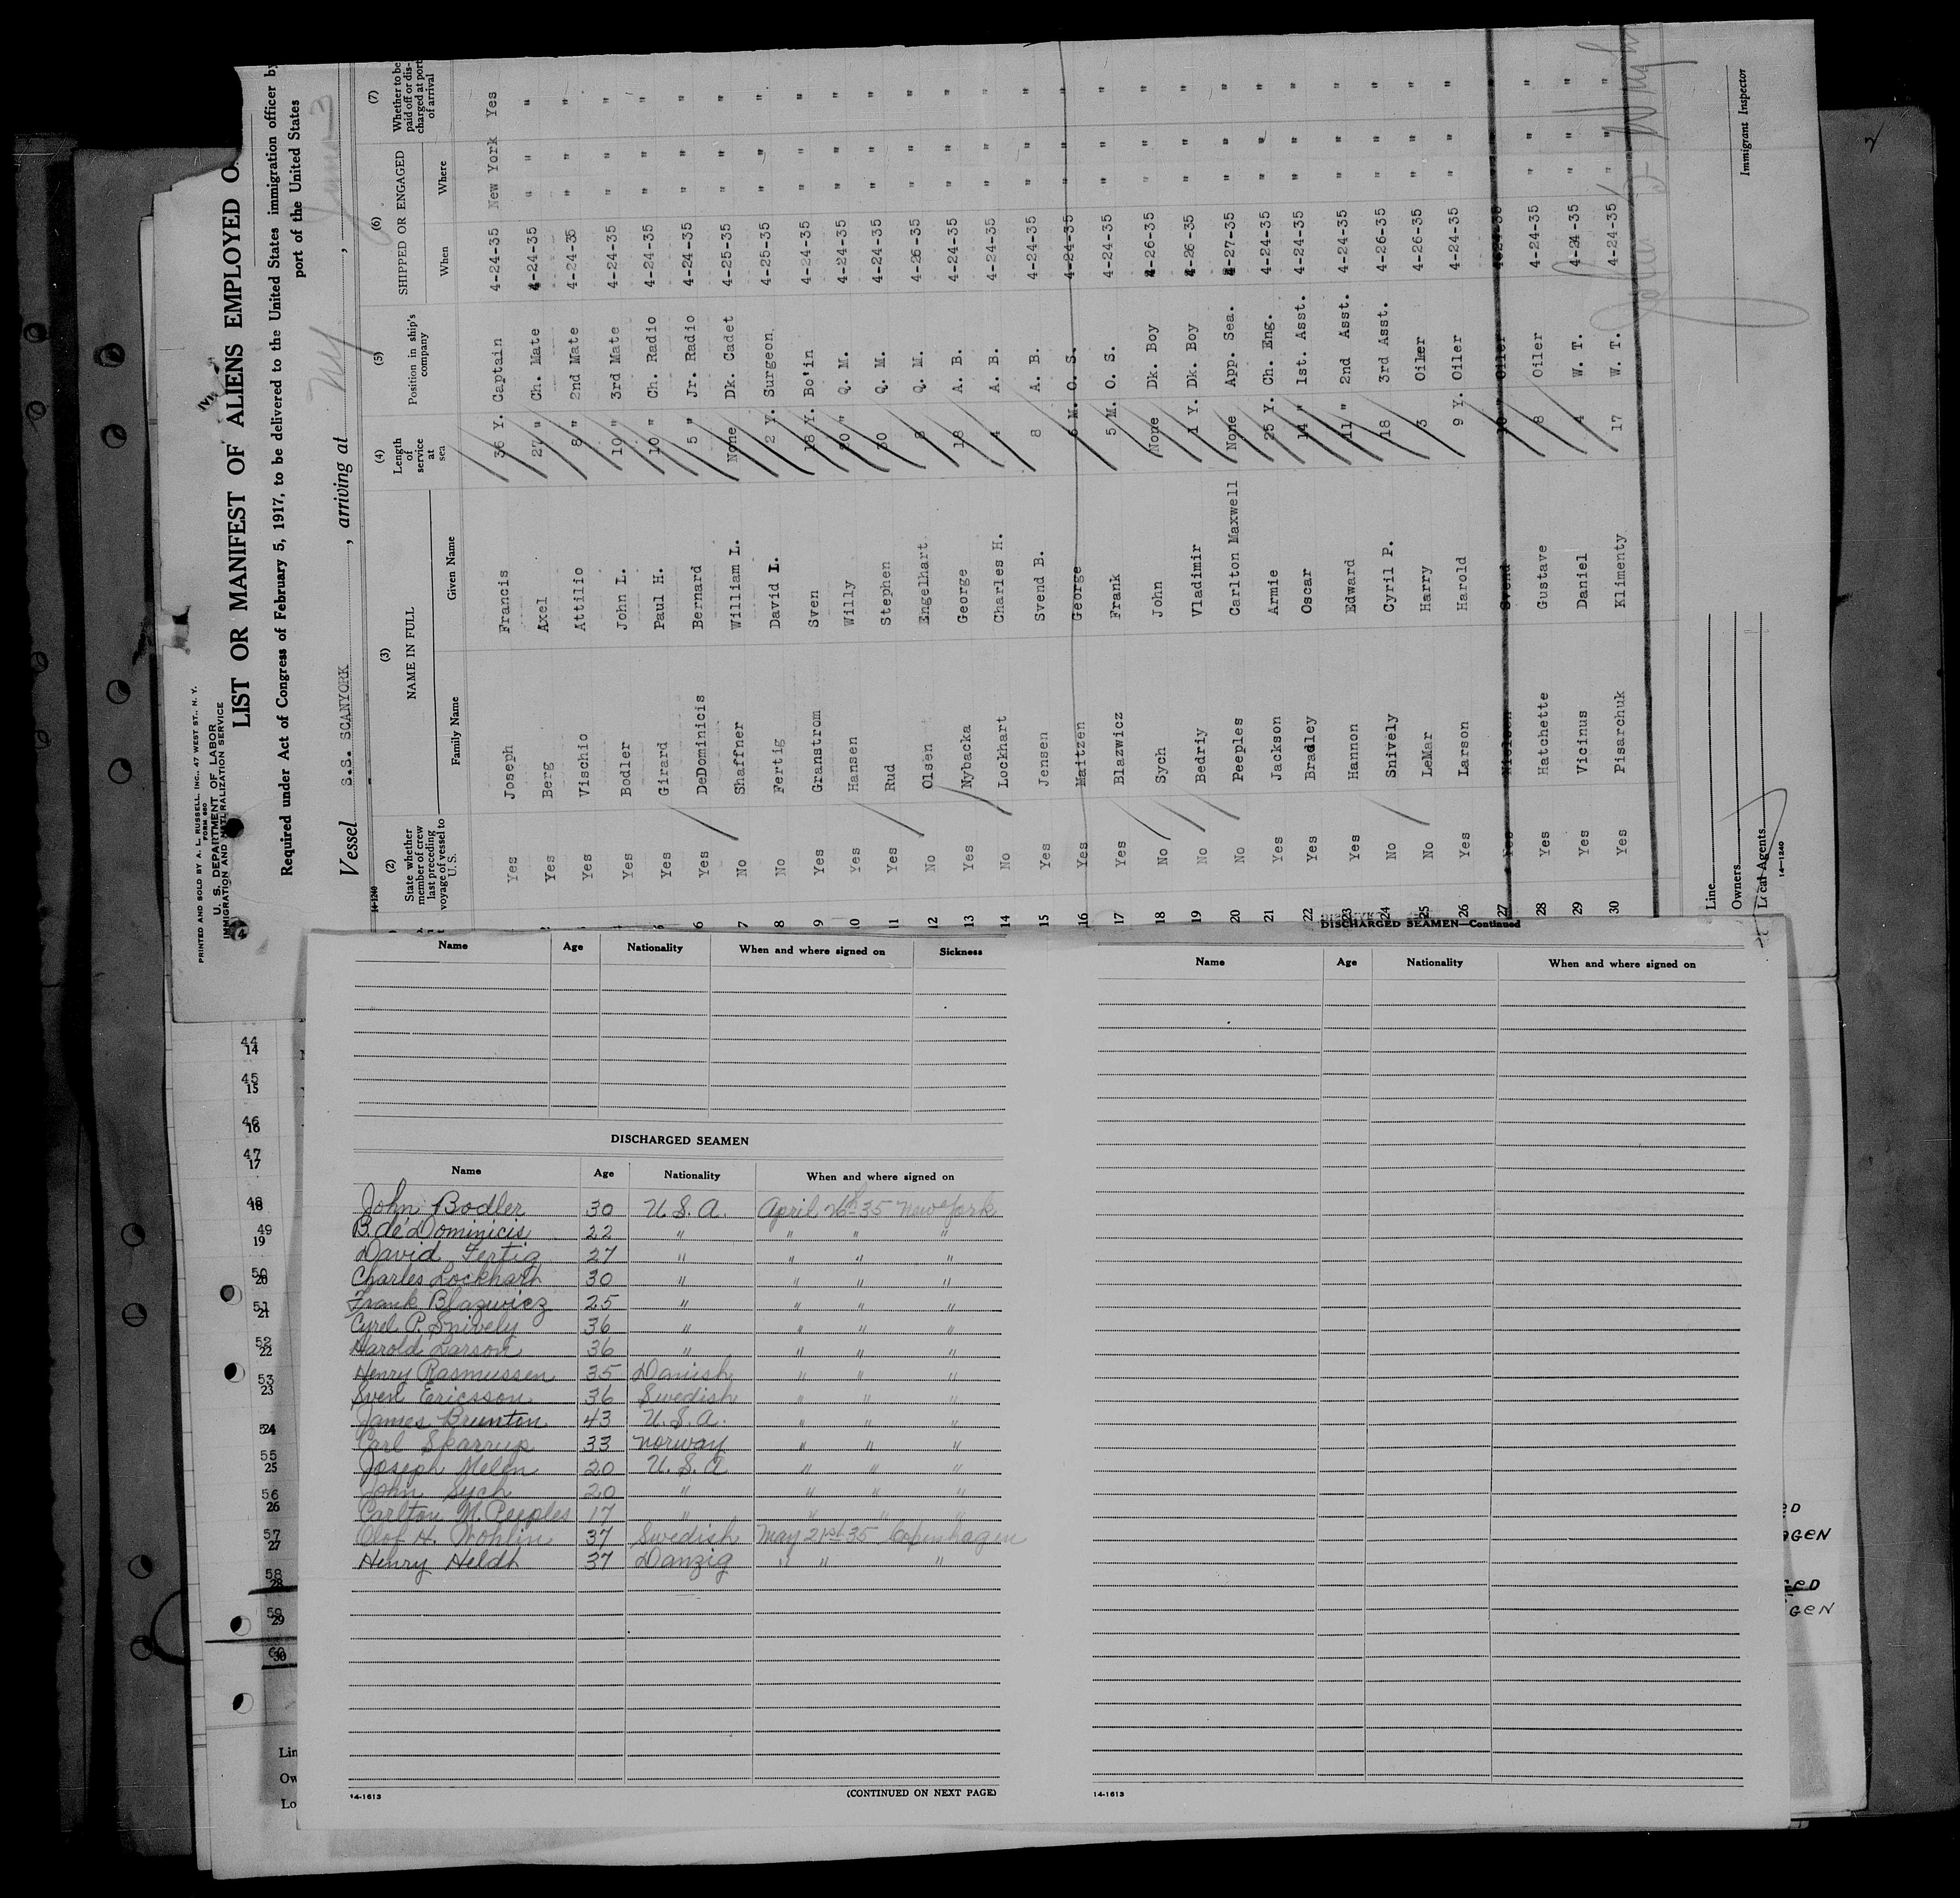 PRINTED AND SOLD BY A. L. RUSSELL, INC., 47 WEST ST., N. Y.
FORM 680
U. S. DEPARTMENT OF LABOR
IMMIGRATION AND NATURALIZATION SERVICE
LIST OR MANIFEST OF ALIENS EMPLOYED O
Required under Act of Congress of February 5, 1917, to be delivered to the United States immigration officer by
port of the United States
Vessel S.S. SCANYORK, arriving at NY, June 3
14-1240
(2) State whether member of crew last preceding voyage of vessel to U. S.
(3) NAME IN FULL
Family Name
Given Name
(4) Length of service at sea
(5) Position in ship's company
(6) SHIPPED OR ENGAGED
When
Where
(7) Whether to be paid off or discharged at port of arrival
Yes Joseph Francis 36 Y. Captain 4-24-35 New York Yes
Yes Berg Axel 27 " Ch. Mate 4-24-35 " " "
Yes Vischio Attilio 8 " 2nd Mate 4-24-35 " " "
Yes Bodler John L. 10 " 3rd Mate 4-24-35 " " "
Yes Girard Paul H. 10 " Ch. Radio 4-24-35 " " "
6 Yes DeDominicis Bernard 5 " Jr. Radio 4-24-35 " " "
7 No Shaffner William L. None Dk. Cadet 4-25-35 " " "
8 No Fertig David L. 2 Y. Surgeon 4-25-35 " " "
9 Yes Granstrom Sven 18 Y. Bo'in 4-24-35 " " "
10 Yes Hansen Willy 20 " Q. M. 4-24-35 " " "
11 Yes Rud Stephen 30 Q. M. 4-24-35 " " "
12 No Olsen Engelhart Q. M. 4-26-35 " " "
13 Yes Nybacka George 18 A. B. 4-24-35 " " "
14 No Lockhart Charles H. 4 A. B. 4-24-35 " " "
15 Yes Jensen Svend B. 8 A. B. 4-24-35 " " "
16 Yes Maitzen George 6 M. O. S. 4-24-35 " " "
17 Yes Blazwicz Frank 5 M. O. S. 4-24-35 " " "
18 No Sych John None Dk. Boy 4-26-35 " " "
19 No Bedriy Vladimir 1 Y. Dk. Boy 4-26-35 " " "
20 No Peeples Carlton Maxwell None App. Sea. 4-27-35 " " "
21 Yes Jackson Armie 25 Y. Ch. Eng. 4-24-35 " " "
22 Yes Bradley Oscar 14 " 1st. Asst. 4-24-35 " " "
23 Yes Hannon Edward 11 " 2nd Asst. 4-24-35 " " "
24 No Snively Cyril P. 18 3rd Asst. 4-26-35 " " "
25 No LeMar Harry 3 Oiler 4-26-35 " " "
26 Yes Larson Harold 9 Y. Oiler 4-24-35 " " "
27 Yes Nielsen Svend 10 " Oiler
28 Yes Hatchette Gustave 8 Oiler 4-24-35 " " "
29 Yes Vicinus Daniel 4 W. T. 4-24-35 " " "
30 Yes Pisarchuk Klimenty 17 W. T. 4-24-35 " " "
Line
Owners
Local Agents
14-1240
Immigrant Inspector
Name Age Nationality When and where signed on Sickness
DISCHARGED SEAMEN
Name Age Nationality When and where signed on
John Bodler 30 U.S.A. April 26th 35 New York
B. de Dominicis 22 " " " "
David Fertig 27 " " " "
Charles Lockhart 30 " " " "
Frank Blazwicz 25 " " " "
Cyrel P. Snively 36 " " " "
Harold Larson 36 " " " "
Henry Rasmussen 35 Danish " " "
Sven Ericsson 36 Swedish " " "
James Bruntin 43 U.S.A. " " "
Carl Skarrup 33 Norway " " "
Joseph Melen 20 U.S.A " " "
John Sych 20 " " " "
Carlton M. Peeples 17 " " " "
Olof H. Frohlin 37 Swedish May 21st 35 Copenhagen
Henry Heldt 37 Danzig " " "
14-1613
(CONTINUED ON NEXT PAGE)
DISCHARGED SEAMEN—Continued
Name Age Nationality When and where signed on
14-1613
44 14
45 15
46 16
47 17
48 18
49 19
50 20
51 21
52 22
53 23
54 24
55 25
56 26
57 27
58 28
59 29
60 30
Lin
Ow
Lo
ED
AGEN
GED
GEN